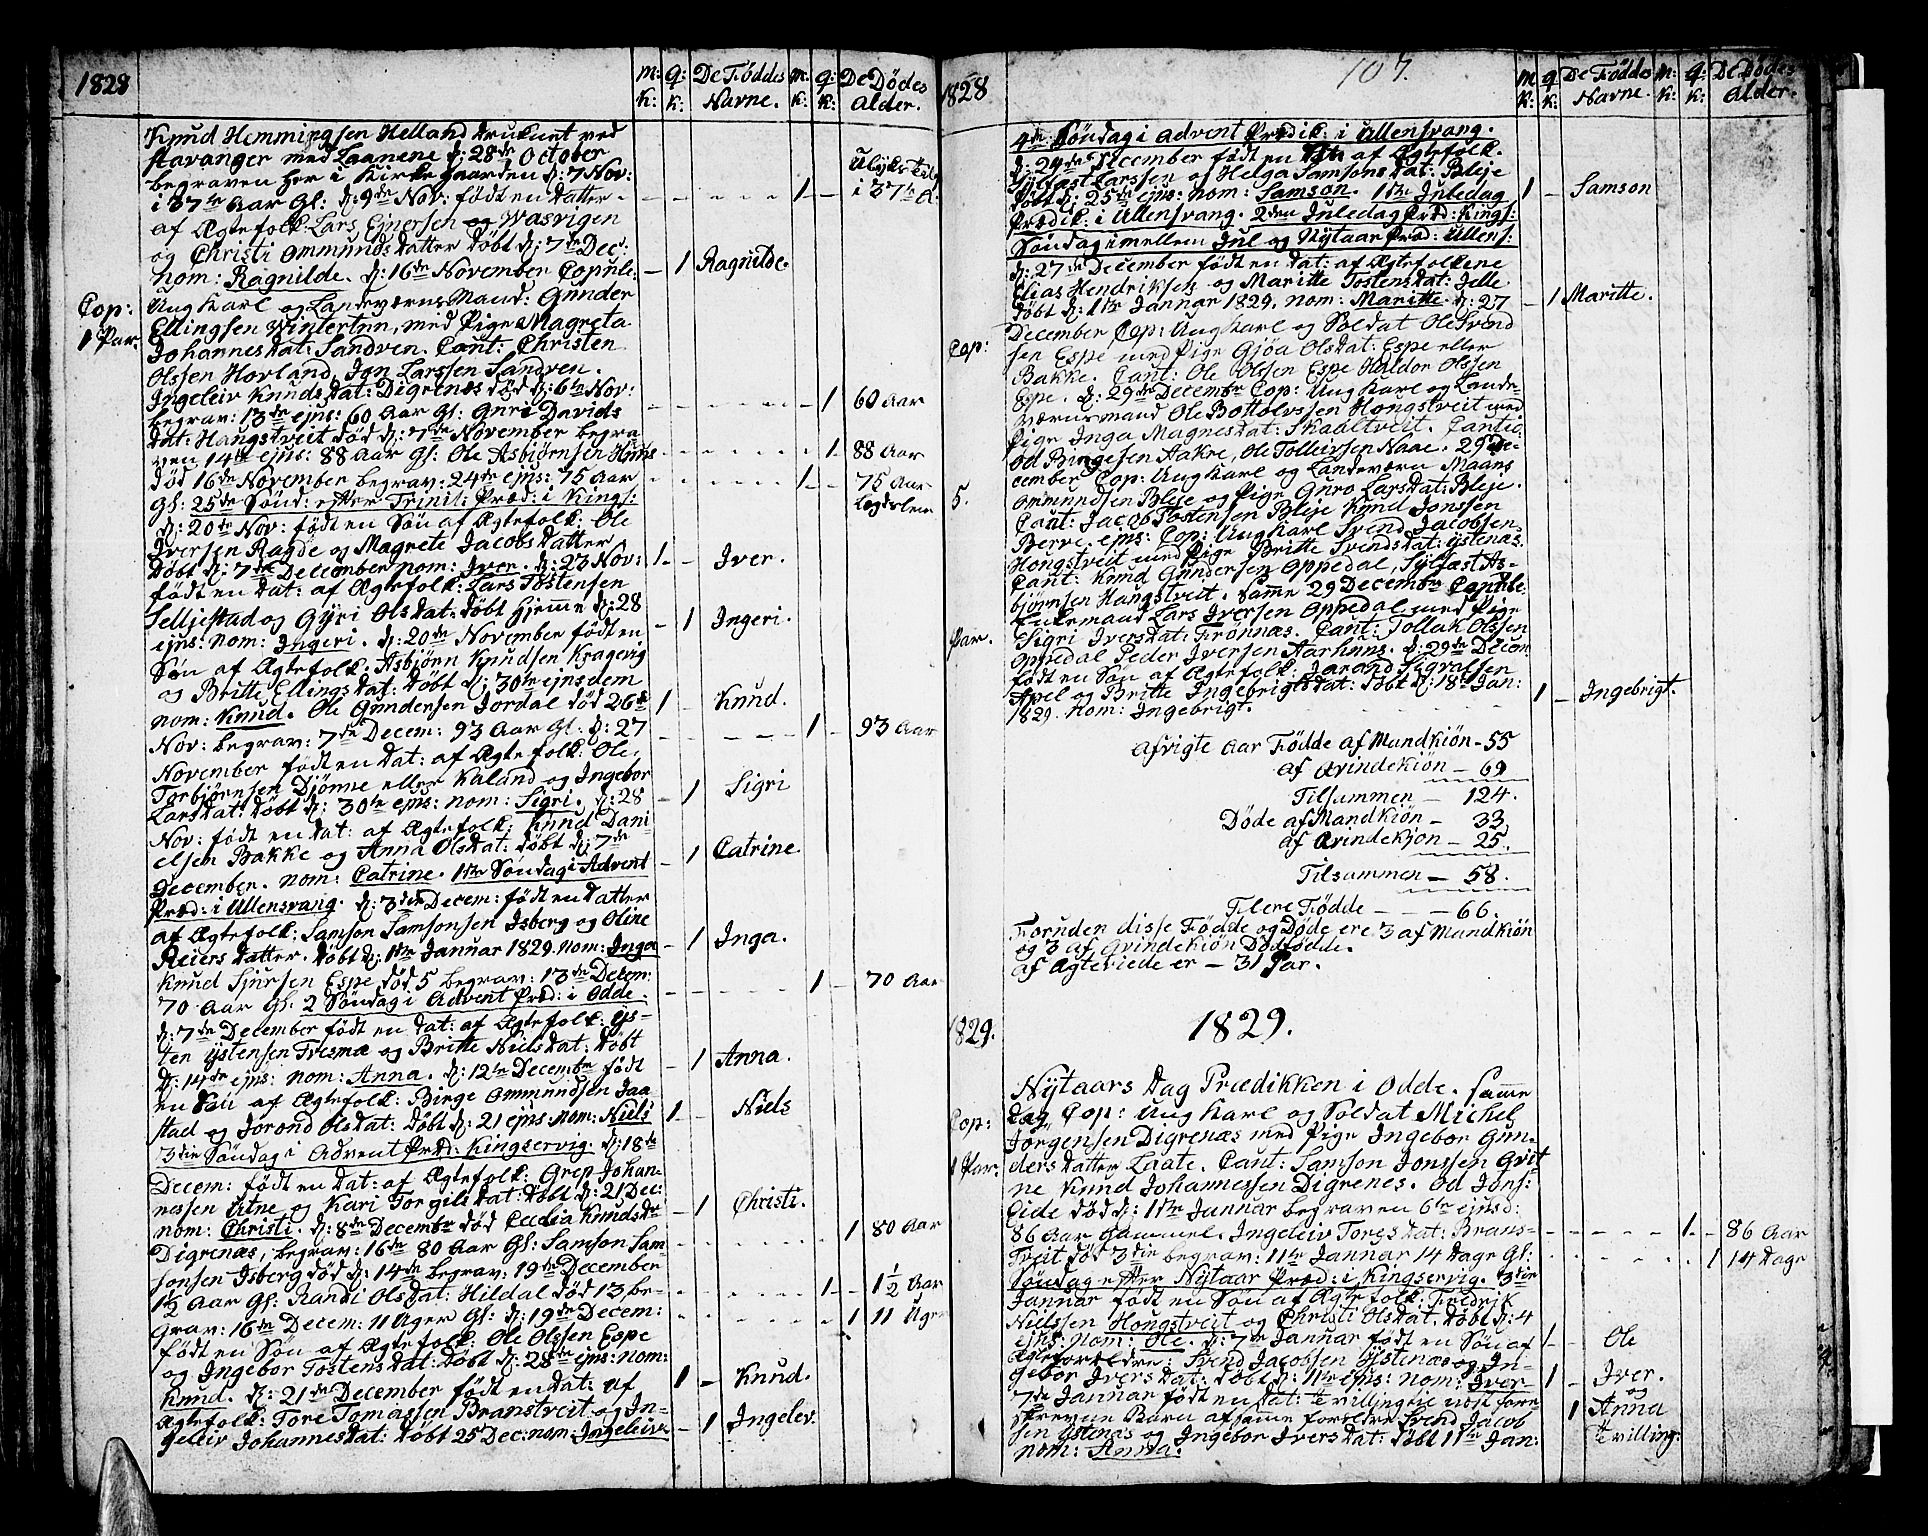 1828
m: k:
q: k:
De Fødde Navne.
m: k:
q: k:
De Dødes Alder.
Knud Hemmingsen Helland druknet ved
Stavanger med Laanene d: 28de October
begraven her i Kirkegaarden d: 7 Nov:
i 37te Aar Gl: d: 9de Nov: født en Datter
1 Ulyks i 37te A:
af Ægtefolk: Lars Ejnersen Wasvigen
og Christi Ommunds datter døbt d: 7de Dec:
nom: Ragnilde. d: 16de November Copule:
1 Ragnilde.
Cop: 1 Par:
Ung Karl og Landeværns Mand: Gunder
Ellingsen Wintertun, med Pige Magreta
Johannes dat: Sandven. Caut: Christen
Olssen Hovland, Jon Larssen Sandven.
Ingeleiv Knuds dat: Digrenæs død d: 6te Nov:
begrav: 13de ejns: 60 Aar Gl: Guri Davids
1 60 Aar
dat: Haugstveit død d: 7de November begra-
ven 14de ejns: 88 Aar Gl: Ole Asbjørnsen Huus
1 88 Aar
død 16de November begrav: 24de ejns: 75 Aar
1 75 Aar Lægdslem
Gl: 25de Sønd: efter Trinit: Præd: i Kings:
d: 20de Nov: født en Søn af Ægtefolk: Ole
Iversen Ragde og Magrete Jacobs datter
døbt d: 7de December nom: Iver. d: 23 Nov:
1 Iver.
født en dat: af Ægtefolk: Lars Tostensen
Selljestad og Gyri Ols dat: døbt hjemme d: 28
ejns: nom: Ingeri. d: 20de November født en
1 Ingeri.
Søn af Ægtefolk: Asbjørn Knudsen Kragevig
og Britte Ellings dat: døbt d: 30te ejnsdem
nom: Knud. Ole Gundersen Jordal død 26de
1 Knud.
Nov: begrav: 7de Decem: 93 Aar Gl: d: 27
1 93 Aar
November født en dat: af Ægtefolk: Ole
Torbjørnsen Djønne eller Kaland og Ingebor
Lars dat: døbt d: 30te ejns: nom: Sigri. d: 28
1 Sigri
Nov: født en dat: af Ægtefolk: Knud Dani-
elsen Bakke og Anna Ols dat: døbt d: 7de
December. nom: Catrine. 1ste Søndag i Advent
1 Catrine.
Præd: i Ullensvang. d: 3die Decem: født en datter
af Ægtefolk: Samson Samsonsen Isberg og Oline
Reiers datter. døbt d: 1ste Januar 1829. nom: Inga
1 Inga.
Knud Sjursen Espe død 5 begrav: 13de Decem:
70 Aar Gl: 2 Søndag i Advent Præd: i Odde.
1 70 Aar
d: 7de December født en dat: af Ægtefolk: Ejs-
ten Ejstensen Tresmæ og Britte Niels dat: døbt
d: 14de ejns: nom: Anna. d: 12te December født
1 Anna.
en Søn af Ægtefolk: Birge Ommundsen Jaa
stad og Jorond Ols dat: døbt d: 21 ejns nom: Niels
1 Niels
3die Søndag i Advent Præd: Kingservig. d: 18de
Decem: født en dat: af Ægtefolk: Grep Johan-
nessen Utne og Kari Torgils dat: døbt d: 21 Dec:
nom: Christi. d: 8de December død Cecelia Knuds dt
1 Christi.
Digrenæs, begrav: 16de 80 Aar Gl: Samson Sam
1 80 Aar
sonsen Isberg død d: 14de begrav: 19de December
1½ Aar Gl: Randi Ols dat: Hildal død 13 be-
1 1½ Aar
grav: 16de Decem: 11 Uger Gl: d: 19de Decem:
1 11 Uger
født en Søn af Ægtefolk: Ole Olssen Espe
og Ingebor Tostens dat: døbt d: 28de ejns: nom:
Knud. d: 21de December født en dat: af
1 Knud.
Ægtefolk: Tore Tomassen Branstveit og In-
geleiv Johannes dat: døbt 25 Dec: nom: Ingeleiv
1 Ingelev.
1828
107.
m k:
q k:
De Fødde Navne.
m: k:
q: k:
De Dødes Alder.
4de Søndag i Advent Prædik: i Ullensvang.
d: 24de December født en af Ægtefolk.
Sylfæst Larssen og Helga Samsons dat: Bleje
døbt d: 25de ejns: nom: Samson. 1ste Juledag
1 Samson
Prædik: i Ullensvang. 2den Juledag Præd: Kings:
Søndag imellem Jul og Nytaar Præd: Ullens:
d: 27de December født en dat: af Ægtefolkene
Elias Hendriksen og Maritte Tostens dat: Jelle
døbt d: 1ste Januar 1829. nom: Maritte. d: 27
1 Maritte.
Cop:
December Cop: Ung Karl og Soldat Ole Svend
sen Espe med Pige Gjøa Ols dat: Espe eller
Bakke. Caut: Ole Olssen Espe Haldor Olssen
Espe. d: 29de Decembr Cop: Ung Karl og Lande-
værnsmand Ole Bottolvssen Hongstveit med
Pige Inga Magnes dat: Skaaltveit. Cautio:
Od Birgesen Aakre, Ole Tolleivsen Naae. 29 De-
cember Cop: Ung Karl og Landeværn Maans
5.
Ommundsen Bleje og Pige Guro Lars dat: Bleje.
Caut: Jacob Tostensen Bleje Knud Jonssen
Berve. ejns: Cop: Ung Karl Svend Jacobsen
Hongstveit med Pige Britte Svends dat: Ystenæs.
Caut: Knud Gundersen Oppedal, Sylfæst As-
bjørnsen Hangstveit. Samme 29 Decembr Copule
Enkemand Lars Iversen Oppedal med Pige
Par.
Sigri Ivers dat: Frønnæs. Caut: Tollak Olssen
Oppedal Peder Iversen Aarhuus. d: 29de Decem
født en Søn af Ægtefolk: Jarand Sigvalsen
Apel og Britte Ingebrigts dat: døbt d: 18de Jan:
1829. nom: Ingebrigt.
1 Ingebrigt.
Afvigte Aar Fødde af Mandkiøn - 55
af Qvindekiøn - 69
Tilsammen - 124.
Døde af Mandkiøn - 33.
af Qvindekjøn - 25.
Tilsammen - 58.
Flere Fødde - - - 66.
Foruden disse Fødde og Døde ere 3 af Mandkiøn
og 3 af Qvindekiøn Dødfødde.
af Ægteviede er - 31 Par.
1829.
1829.
Nytaars Dag Prædikken i Odde. Samme
Cop:
dag Cop: Ung Karl og Soldat Michel
Jørgensen Digrenæs med Pige Ingebor Gun-
1 Par.
ders datter Laate. Caut: Samson Jonssen Qvit
ne Knud Johannessen Digrenes. Od Jons:
Eide død d: 1ste Januar begraven 6te ejnsd:
86 Aar Gammel. Ingeleiv Tores dat: Brans-
1 86 Aar
tveit død 3die begrav: 11te Januar 14 Dage Gl:
1 14 Dage
Søndag efter Nytaar Præd: i Kingservig. 3die
Januar født en Søn af Ægtefolk: Fredrik
Nielssen Hongstveit og Christi Ols dat: døbt d: 4
ejns: nom: Ole. d: 7de Januar født en Søn af
1 Ole
Ægteforældre: Svend Jacobsen Ystenæs og In-
gebor Ivers dat: døbt d: 11te ejns: nom: Iver
1 Iver. og
7de Januar født en dat: tvilling til næst fore
skrevne Barn af samme forældre Svend Jacob
1 Anna tvilling:
sen Ystenæs og Ingebor Ivers dat: døbt 11te Jan:
nom: Anna.